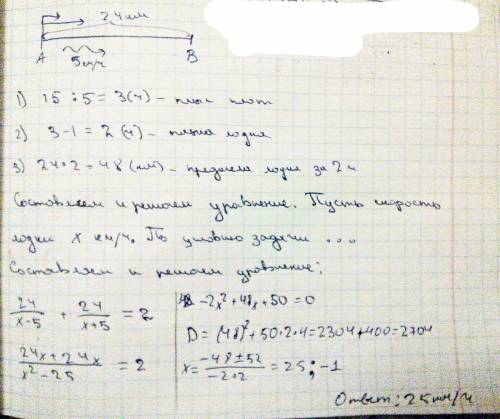 24 км
A B
5 км/ч
1) 15 : 5 = 3 (ч) – плыл плот
2) 3 - 1 = 2 (ч) – плыла лодка
3) 24 · 2 = 48 (км) – преодолела лодка за 2 ч
Составляем и решаем уравнение. Пусть скорость
лодки x км/ч. По условию задачи ...
Составляем и решаем уравнение:
24/(x-5) + 24/(x+5) = 2
(24x+24x)/(x²-25) = 2
-2x²+48x+50=0
D = (48)²+50·2·4=2304+400=2704
x = (-48±52)/(-2·2) = 25; -1
Ответ: 25 км/ч